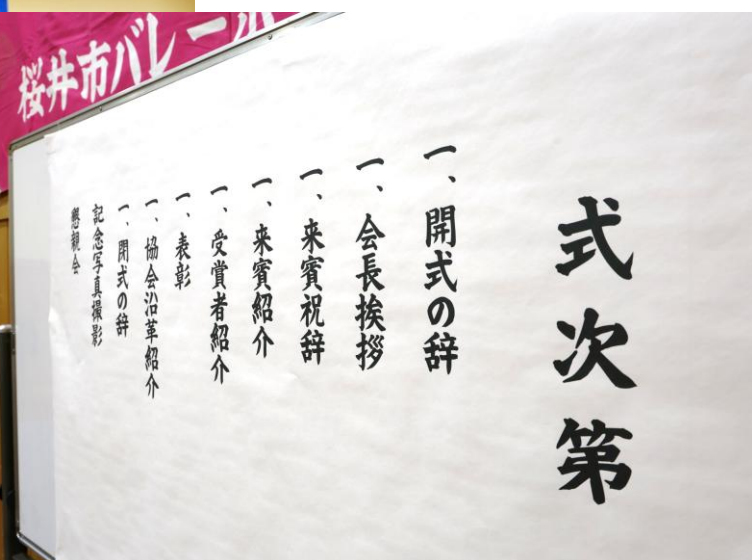 桜井市バレー
式次第
一、開式の辞
一、会長挨拶
一、来賓祝辞
一、来賓紹介
一、受賞者紹介
一、表彰
一、協会沿革紹介
一、閉式の辞
記念写真撮影
懇親会